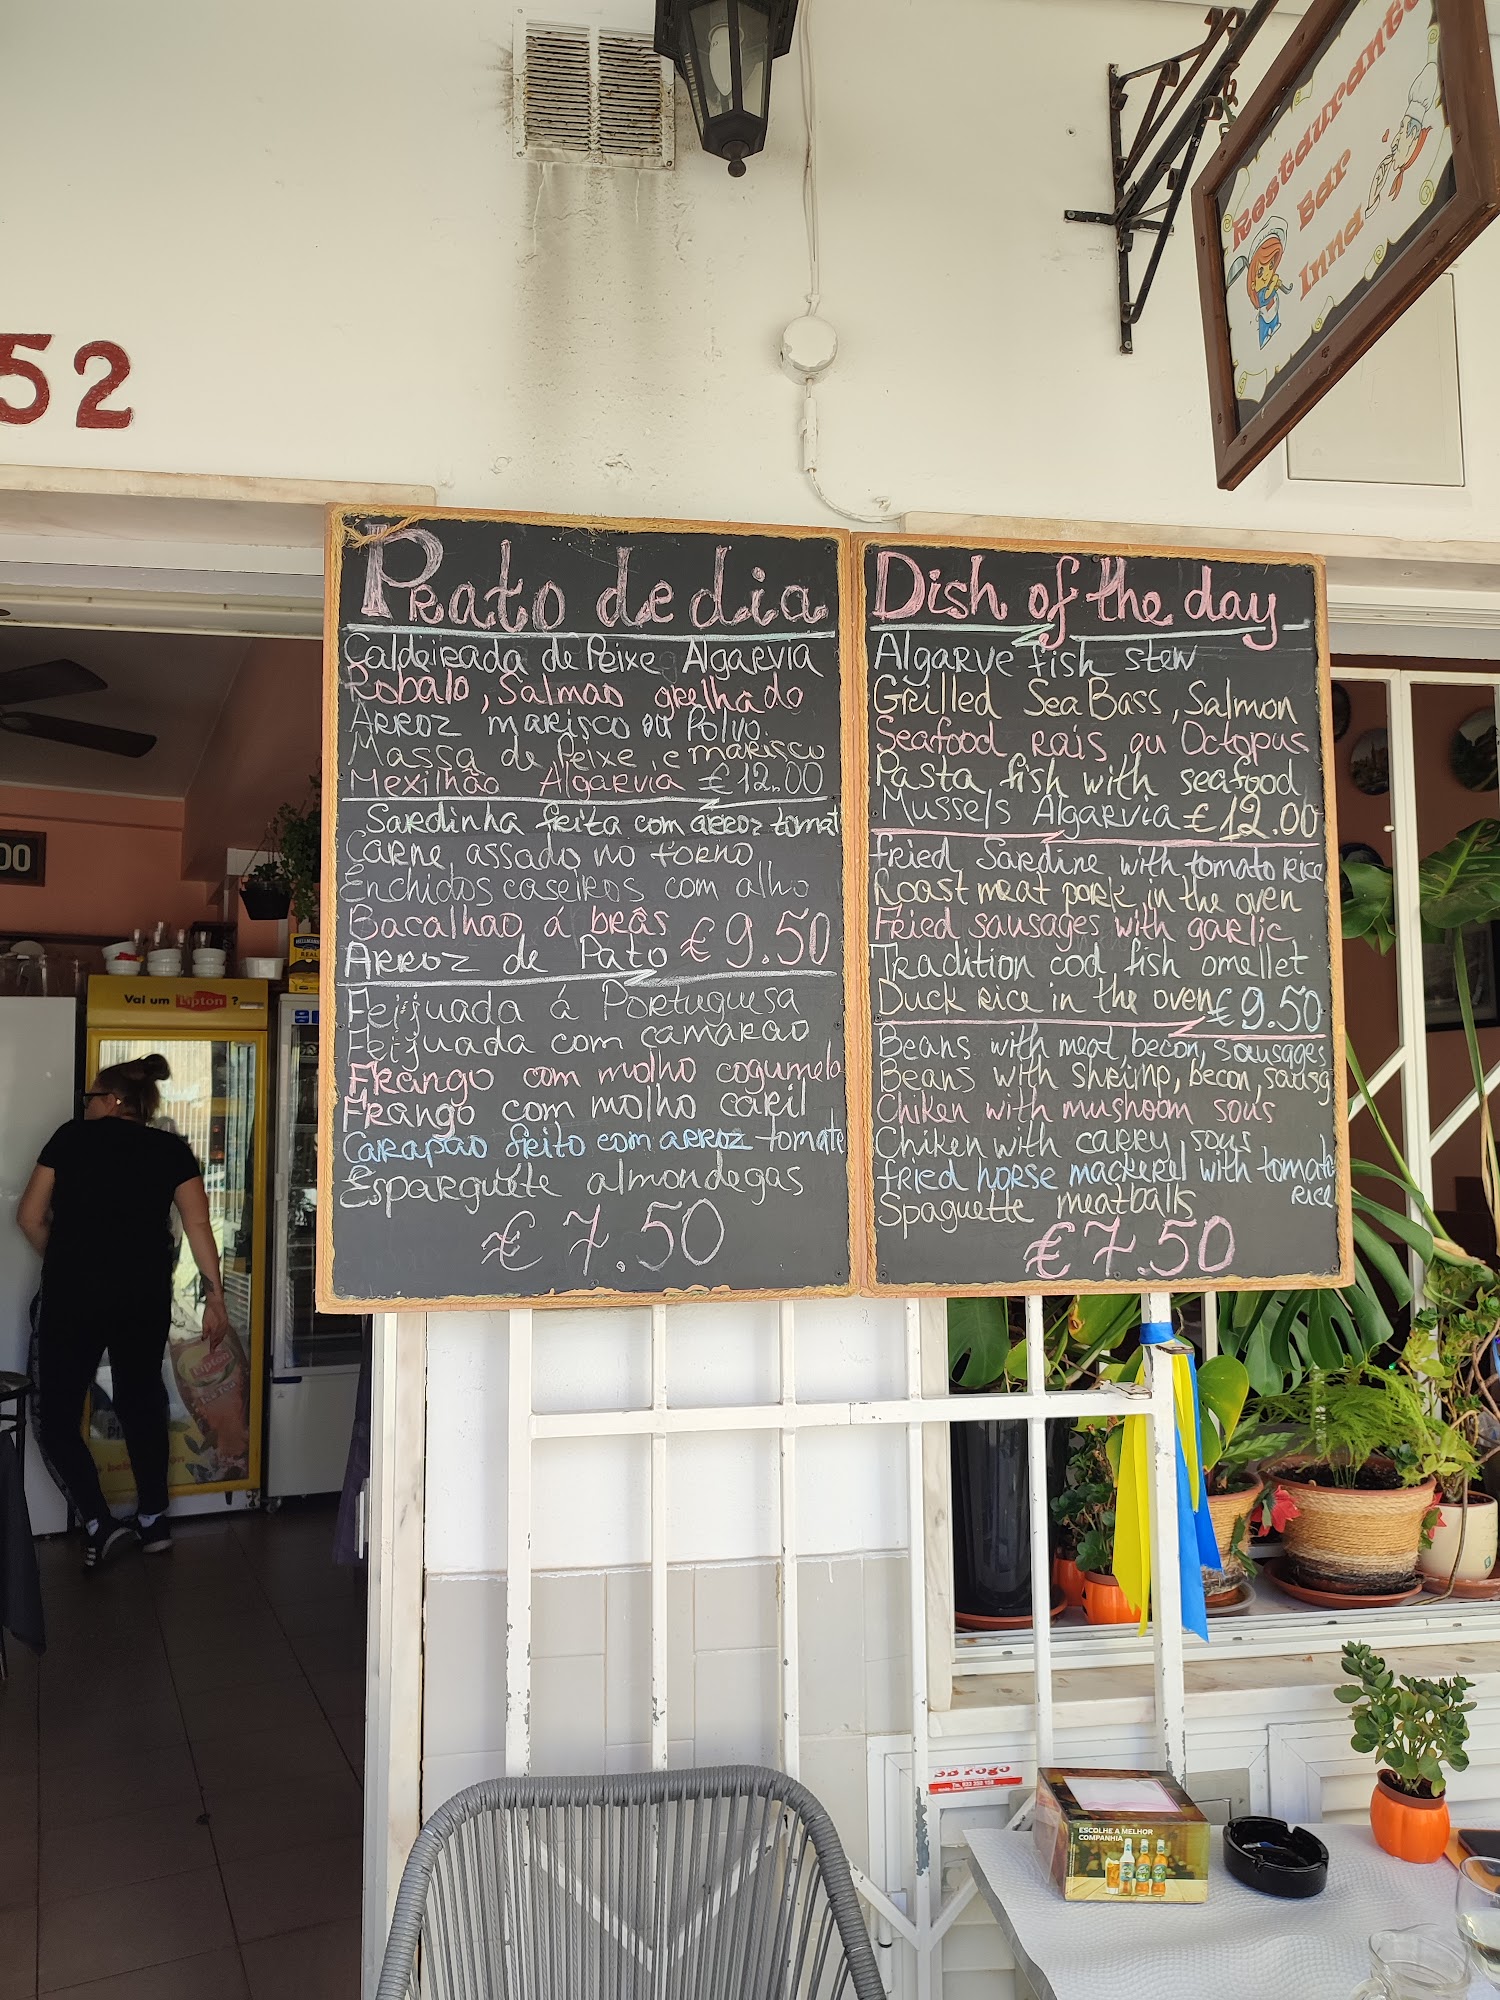 Restaurante
Bar
Inna
52
Prato de dia
Caldeirada de Peixe Algarvia
Robalo, Salmao grelhado
Arroz marisco ou Polvo
Massa de Peixe e marisco
Mexilhão Algarvia €12.00
Sardinha frita com arroz tomat
Carne assado no forno
Enchidos caseiros com alho
Bacalhao á brâs
Arroz de Pato €9.50
Feijuada á Portuguesa
Feijuada com camarao
Frango com molho cogumelo
Frango com molho caril
Carapao freito com arroz tomate
Esparguete almondegas
€7.50
Dish of the day
Algarve fish stew
Grilled Sea Bass, Salmon
Seafood rais ou Octopus
Pasta fish with seafood
Mussels Algarvia €12.00
Fried Sardine with tomato rice
Roast meat pork in the oven
Fried sausages with garlic
Tradition cod fish omellet
Duck rice in the oven €9.50
Beans with meat, becon, sousages
Beans with shrimp, becon, sausg
Chiken with mushoom sous
Chiken with carry sous
fried horse mackerel with tomato
rice
Spaguette meatballs
€7.50
00
Vai um Lipton ?
Lipton
ESCOLHE A MELHOR
COMPANHIA